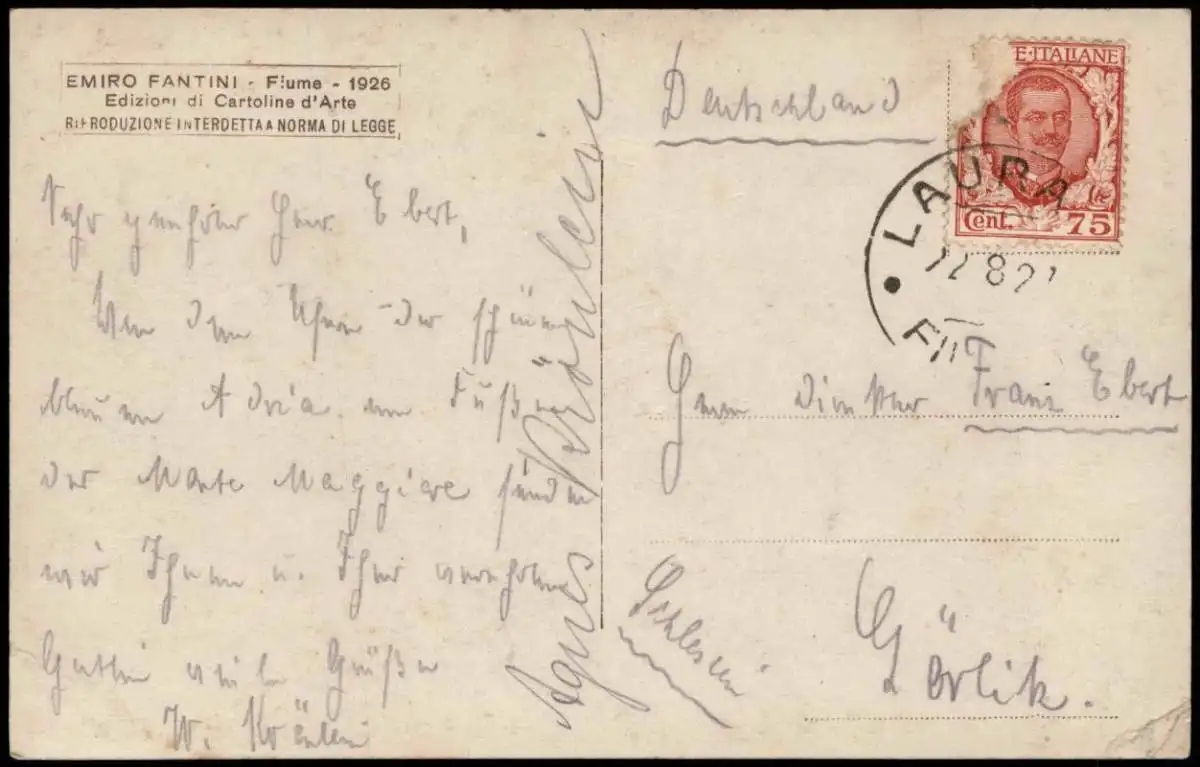 EMIRO FANTINI - Fiume - 1926
Edizioni di Cartoline d'Arte
RIPRODUZIONE INTERDETTA A NORMA DI LEGGE
Sehr geehrter Herr Ebert,
Von dem Ufern der schönen
blauen Adria am Fuße
des Monte Maggiore senden
wir Ihnen u. Ihrer verehrten
Gattin viele Grüße
W.
Agnes
Deutschland
E·ITALIANE
Cent. 75
LAURA
Herrn Direktor Franz Ebert
Görlitz.
Schlesien